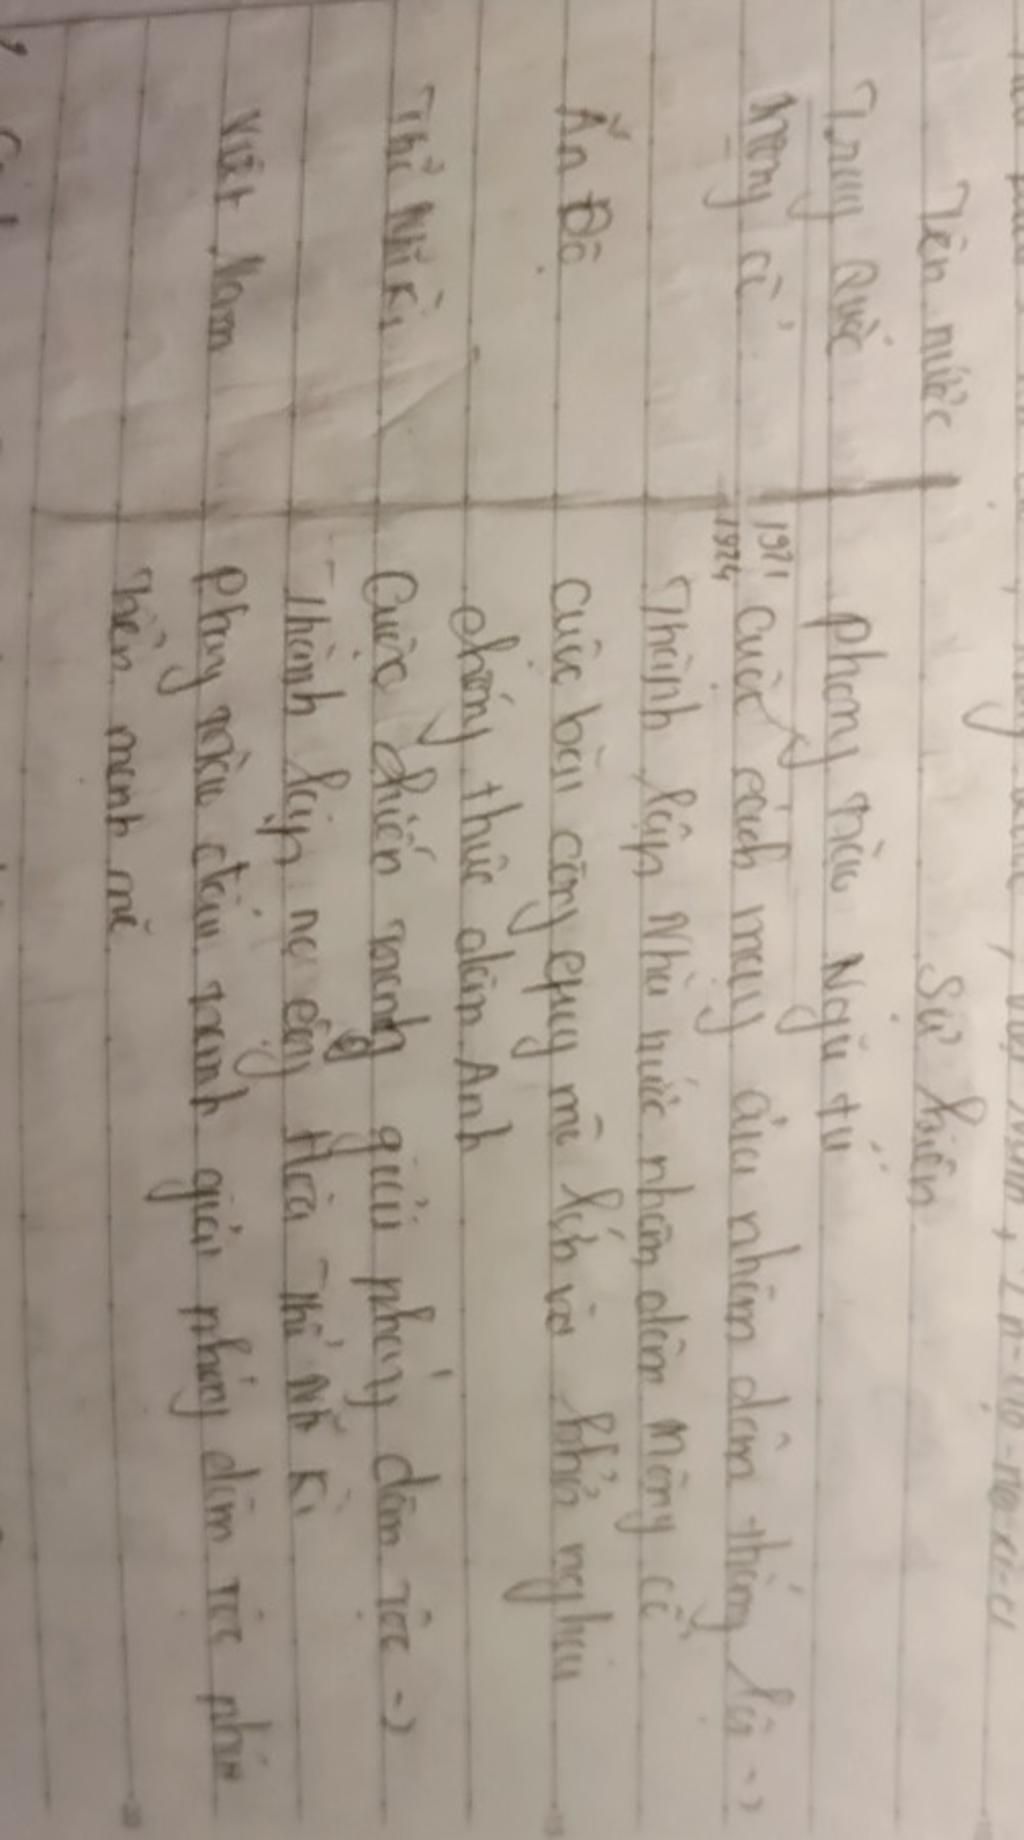 Tên nước Sự kiện
Trung Quốc Phong trào Ngũ tứ
Mông cổ 1921 Cuộc cách mạng của nhân dân thắng lợi ->
1924 Thành lập Nhà nước nhân dân Mông Cổ
Ấn Độ cuộc bãi công quy mô lớn và khởi nghĩa
chống thực dân Anh
Thổ Nhĩ Kì Cuộc chiến tranh giải phóng dân tộc ->
Thành lập nc cộng Hòa Thổ Nhĩ Kì
Việt Nam Phong trào đấu tranh giải phóng dân tộc phát
triển mạnh mẽ